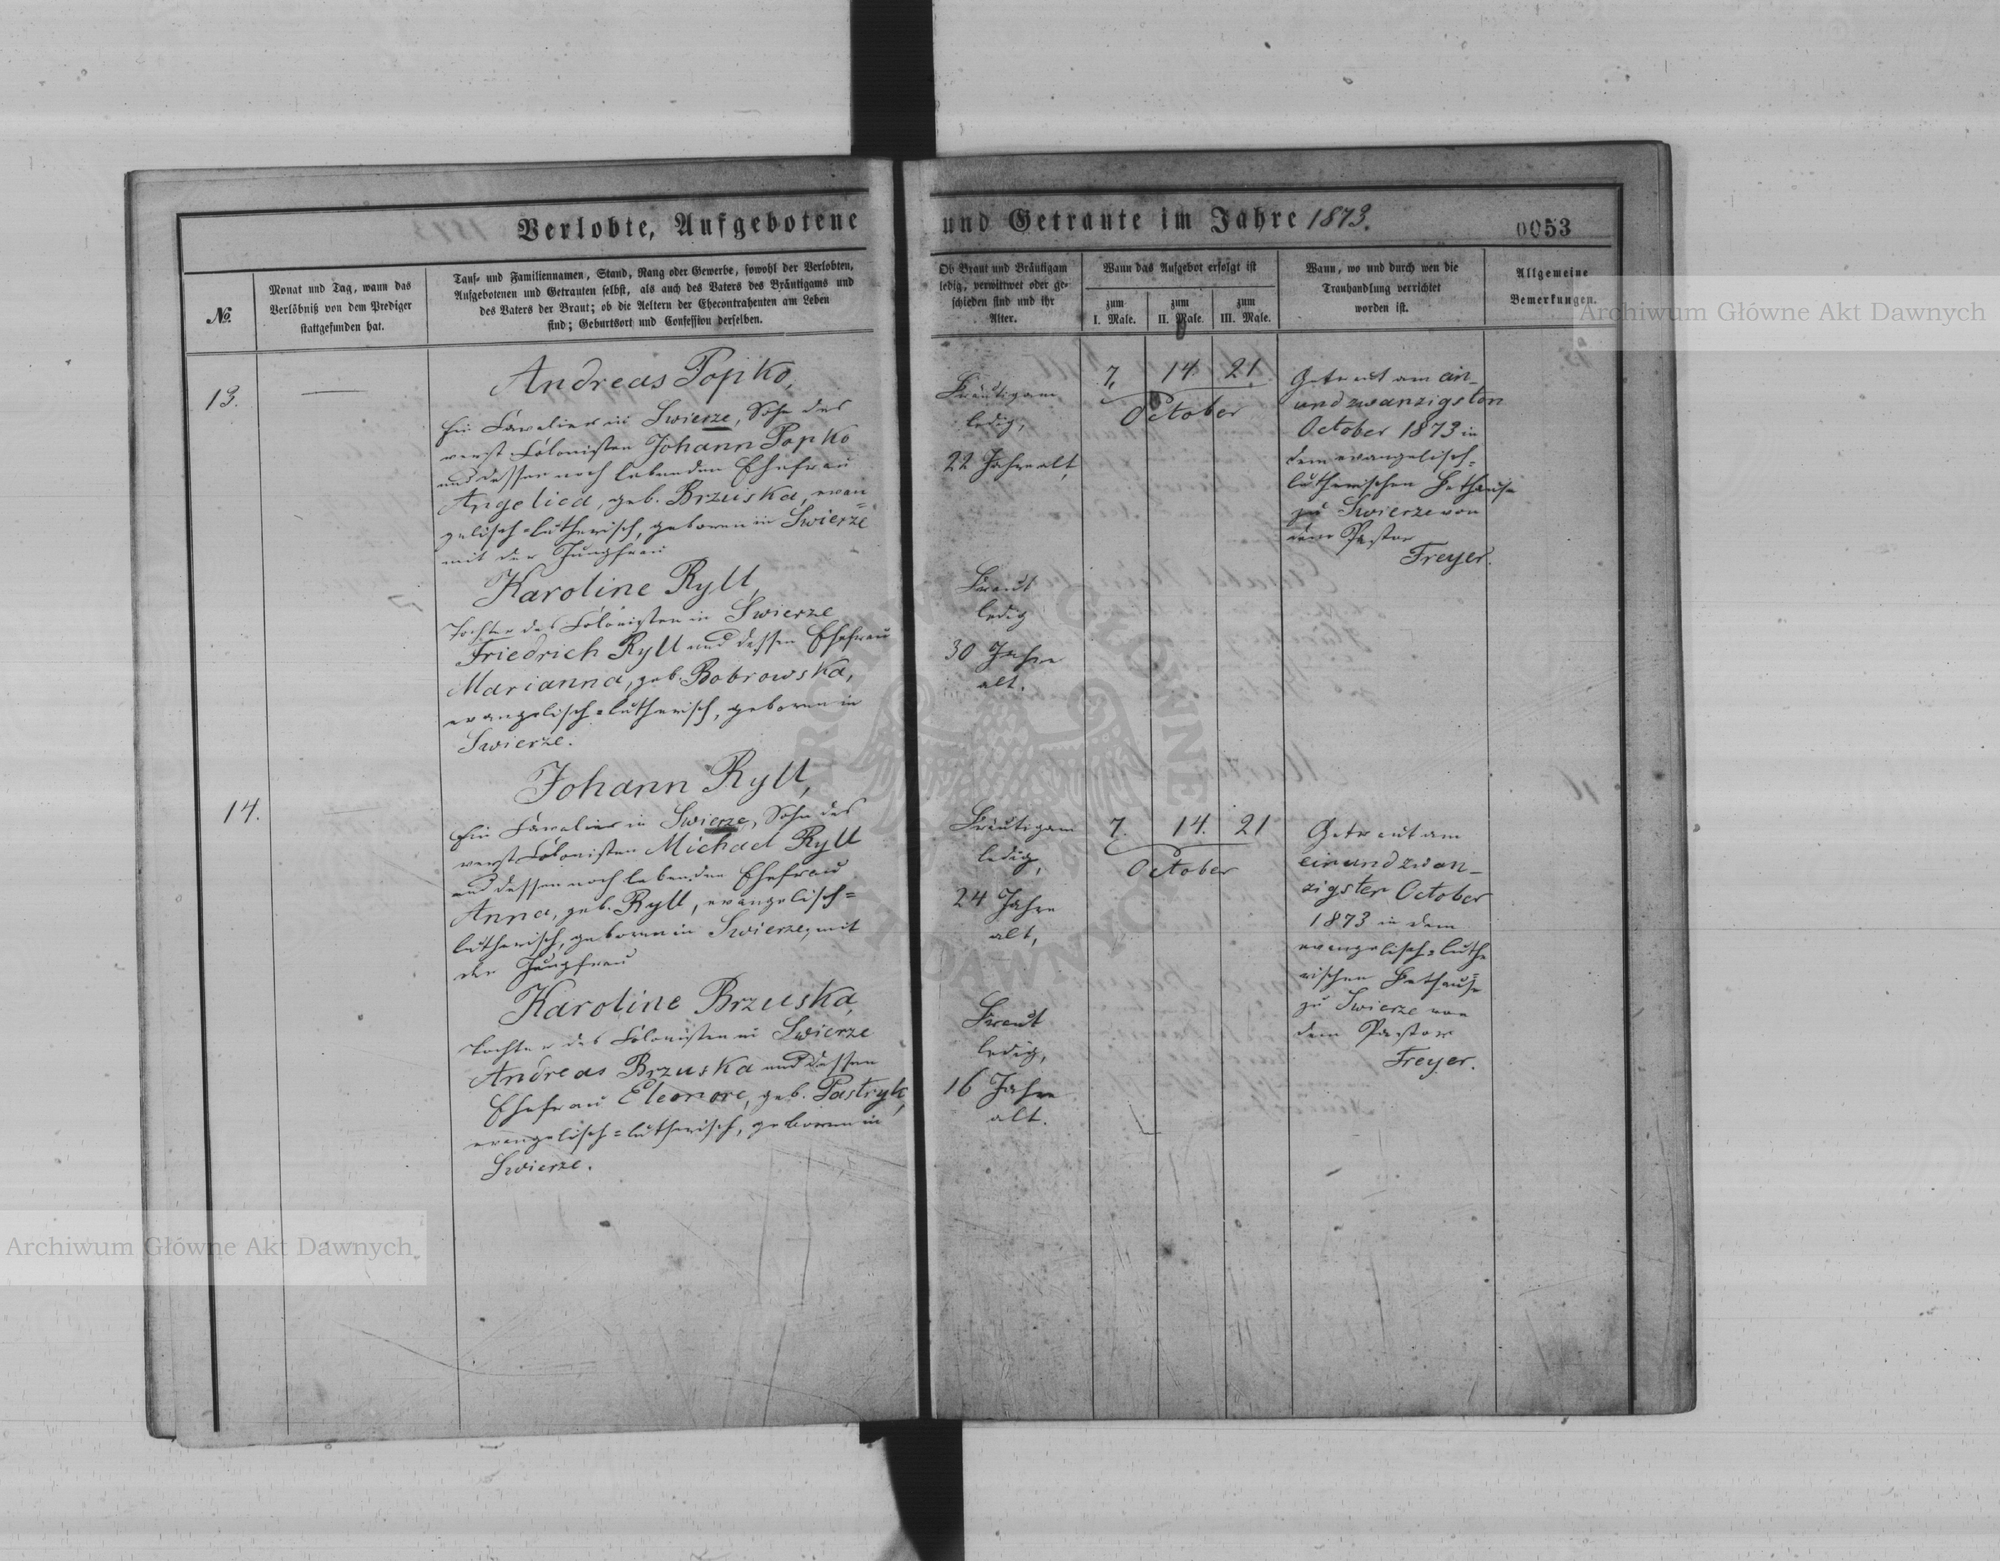 Verlobte, Aufgebotene und Getraute im Jahre 1873.
0053
No.
Monat und Tag, wann das
Verlöbniß von dem Prediger
stattgefunden hat.
Tauf- und Familiennamen, Stand, Rang oder Gewerbe, sowohl der Verlobten,
Aufgebotenen und Getrauten selbst, als auch des Vaters des Bräutigams und
des Vaters der Braut; ob die Aeltern der Ehecontrahenten am Leben
sind; Geburtsort und Confession derselben.
Ob Braut und Bräutigam
ledig, verwittwet oder ge-
schieden sind und ihr
Alter.
Wann das Aufgebot erfolgt ist
zum
I. Male.
zum
II. Male.
zum
III. Male.
Wann, wo und durch wen die
Trauhandlung verrichtet
worden ist.
Allgemeine
Bemerkungen.
13.
Andreas Popko,
Ein Cavalier in Swierze, Sohn des
verst. Colonisten Johann Popko
und dessen noch lebenden Ehefrau
Angelica, geb. Brzuska, evan=
gelisch=lutherisch, geboren in Swierze
mit der Jungfrau
Karoline Ryll,
Tochter des Colonisten in Swierze
Friedrich Ryll und dessen Ehefrau
Marianna, geb. Bobrowska,
evangelisch=lutherisch, geboren in
Swierze.
Bräutigam
ledig,
22 Jahre alt,
Braut
ledig
30 Jahre
alt.
7. 14 21
October
Getraut am ein-
undzwanzigsten
October 1873 in
dem evangelisch=
lutherischen Bethause
zu Swierze von
dem Pastor
Freyer.
14.
Johann Ryll,
Ein Cavalier in Swierze, Sohn des
verst. Colonisten Michael Ryll
und dessen noch lebenden Ehefrau
Anna, geb. Ryll, evangelisch=
lutherisch, geboren in Swierze, mit
der Jungfrau
Karoline Brzuska,
Tochter des Colonisten in Swierze
Andreas Brzuska und dessen
Ehefrau Eleonore, geb. Pastryk,
evangelisch=lutherisch, geboren in
Swierze.
Bräutigam
ledig,
24 Jahre
alt,
Braut
ledig,
16 Jahre
alt.
7. 14. 21
October
Getraut am
einundzwan-
zigsten October
1873 in dem
evangelisch=luthe
rischen Bethause
zu Swierze von
dem Pastor
Freyer.
Archiwum Główne Akt Dawnych
Archiwum Główne Akt Dawnych
ARCHIWUM GŁÓWNE AKT DAWNYCH